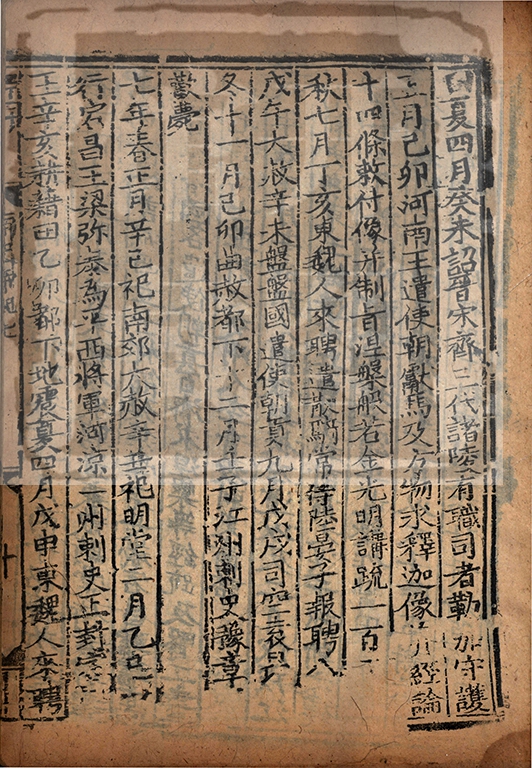 夏四月癸未詔晋宋齊三代諸陵有職司者勤加守護
五月己卯河南王遣使朝獻馬及方物求釋迦像并經論
十四條敕付像并制旨涅槃般若金光明講疏一百
秋七月丁亥東魏人來聘遣散騎常侍陸晏子報聘八
戊午大赦辛未盤盤國遣使朝貢九月戊戌司空袁昂
冬十一月己卯曲赦都下十二月壬子江州刺史豫章
歡薨
七年春正月辛巳祀南郊大赦辛丑祀明堂二月乙巳
行宕昌王梁弥泰為平西將軍河凉二州刺史正封宕
王辛亥耕藉田乙卯都下地震夏四月戊申東魏人來聘